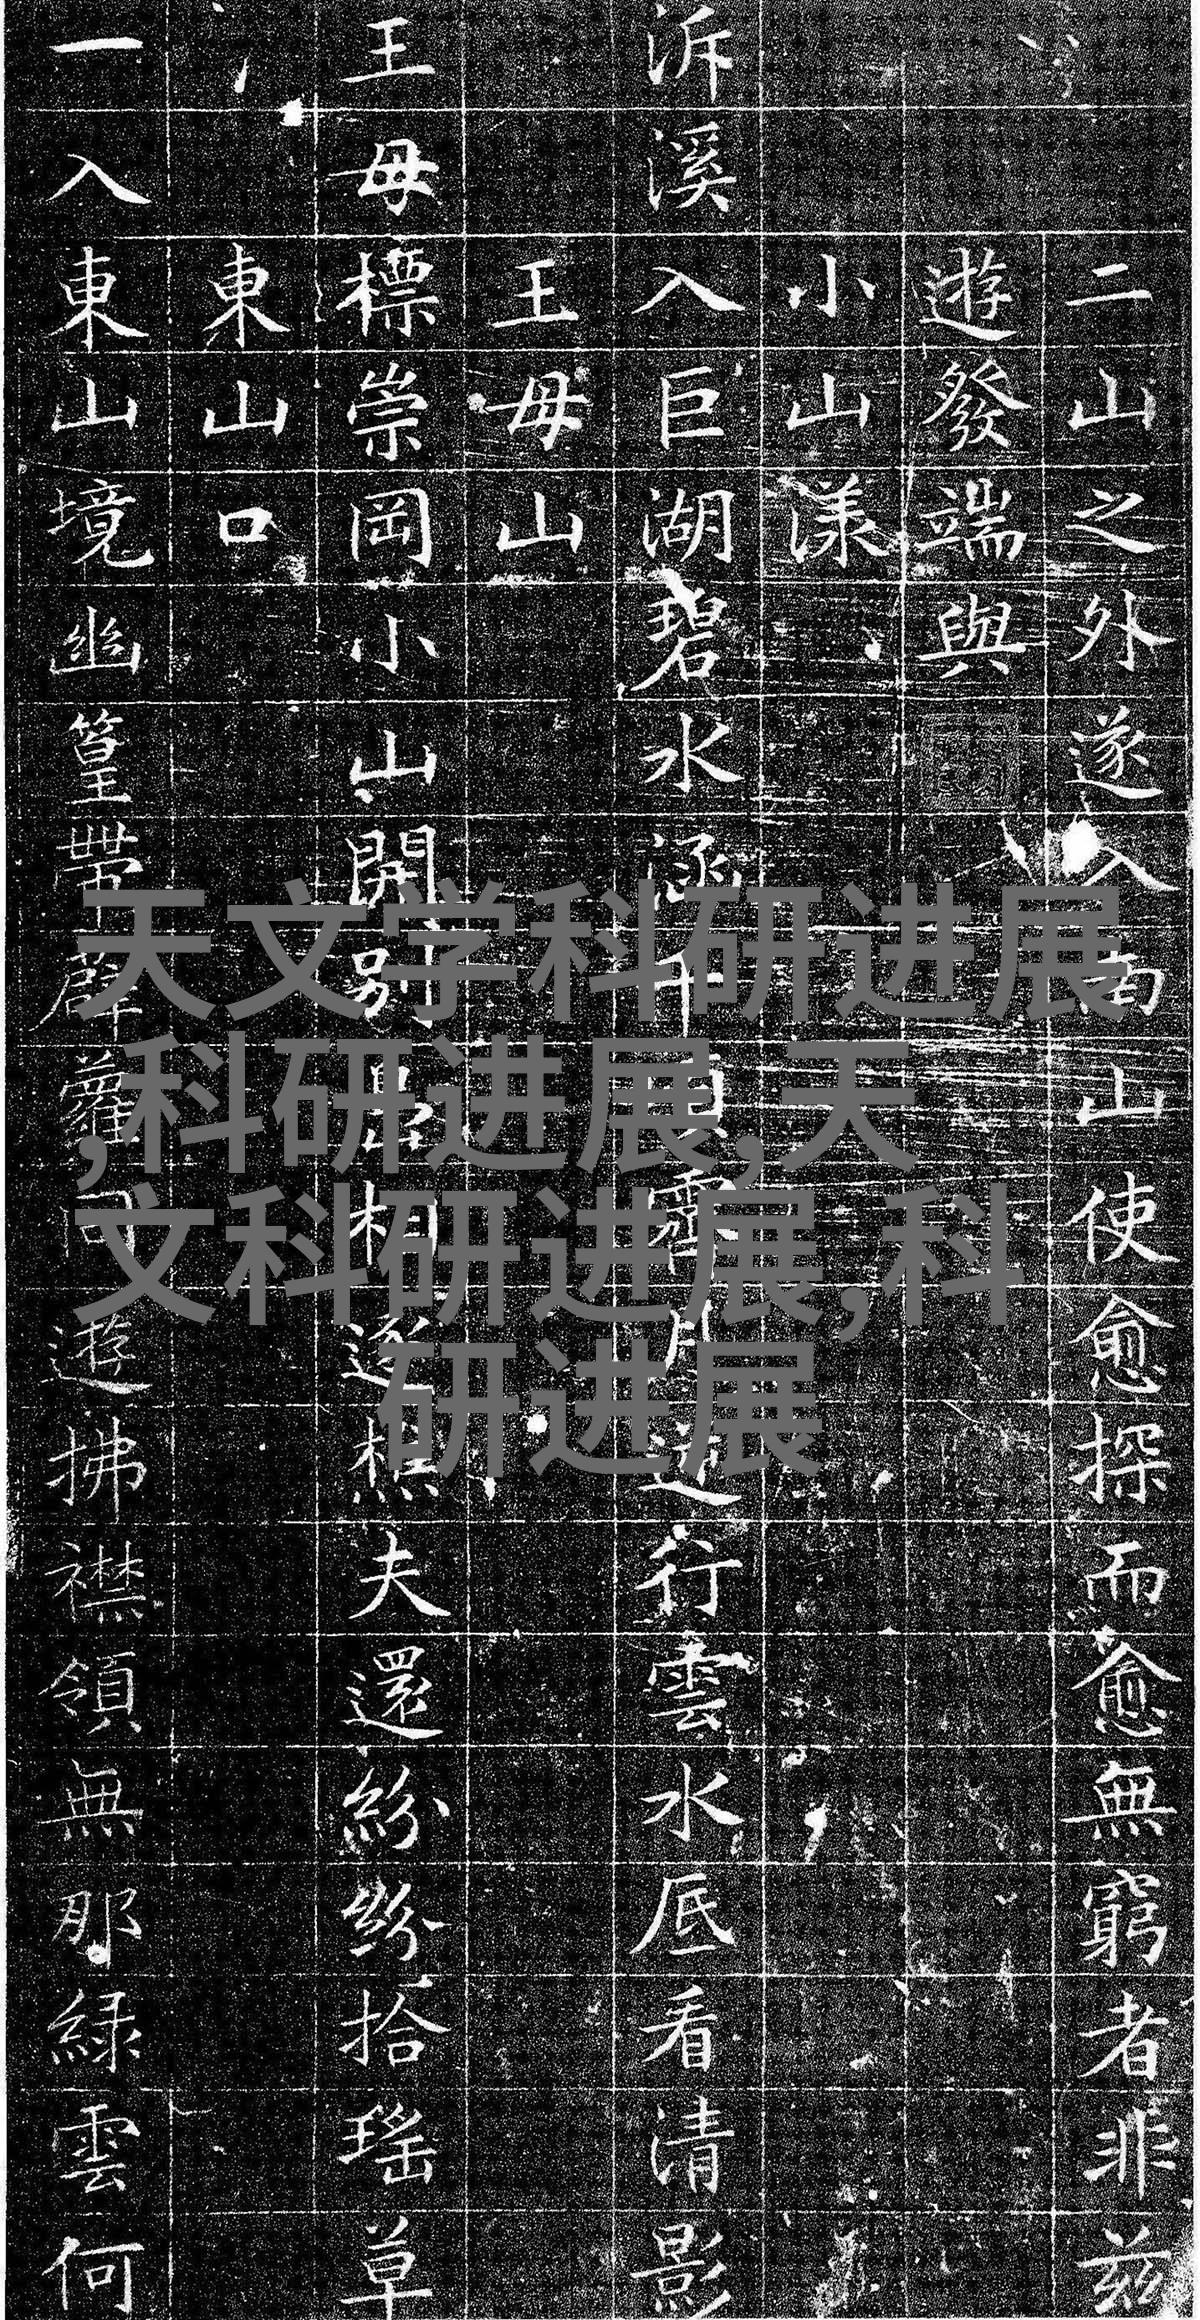 二山之外遂入南山使愈探而愈無窮者非茲
遊發端與
小山漾
泝溪入巨湖碧水涵行雲水底看清影
王母山
王母標崇岡小山開別相逐樵夫還紛紛拾瑤草
東山口
一入東山境幽篁帶薜蘿同遊拂襟領無那綠雲何
天文学科研进展
,科研进展,天
文科研进展,科
研进展